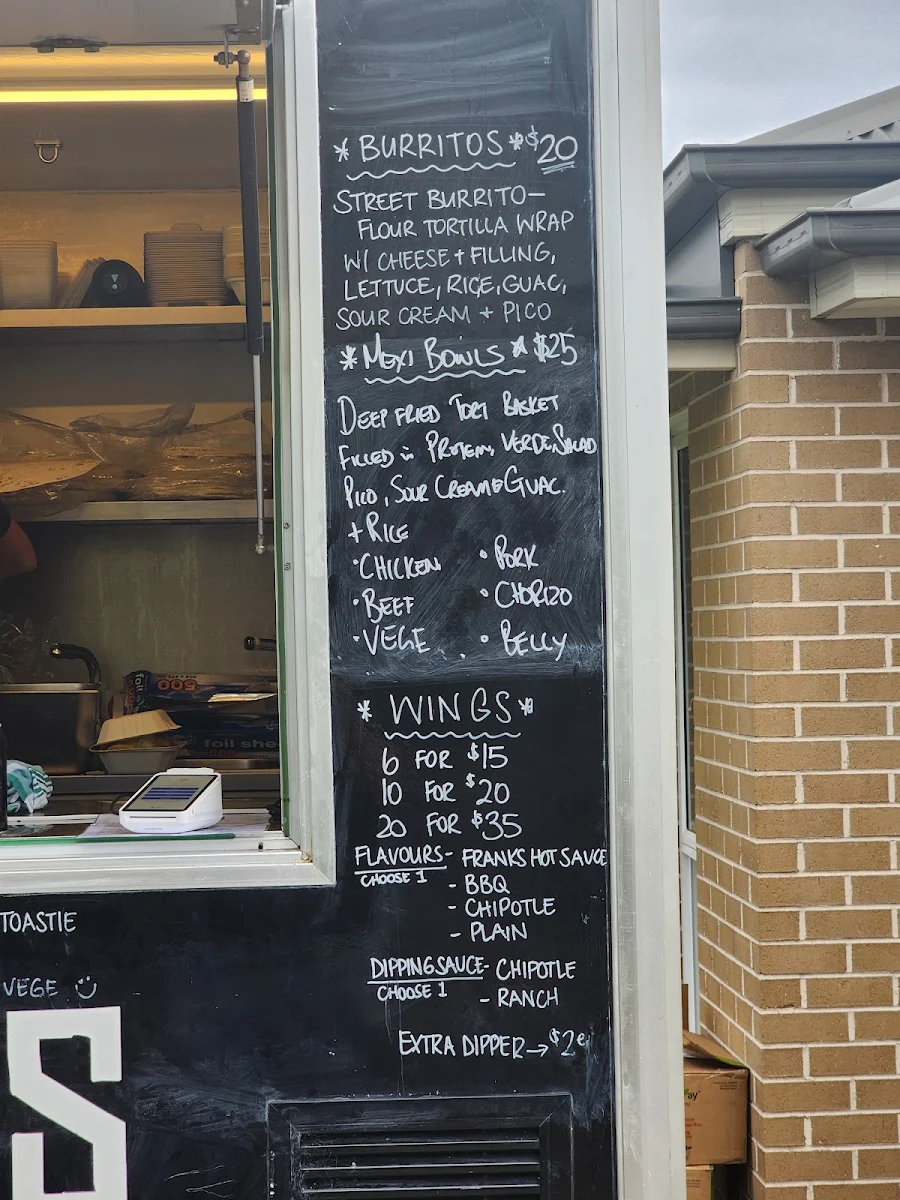 * BURRITOS * $20
STREET BURRITO-
FLOUR TORTILLA WRAP
W/ CHEESE + FILLING,
LETTUCE, RICE, GUAC,
SOUR CREAM + PICO
* MEXI BOWLS * $25
DEEP FRIED TORT BASKET
FILLED w PROTEIN, VERDE, SALAD
PICO, SOUR CREAM & GUAC.
+ RICE
• CHICKEN • PORK
• BEEF • CHORIZO
• VEGE • BELLY
* WINGS *
6 FOR $15
10 FOR $20
20 FOR $35
FLAVOURS - FRANKS HOT SAUCE
CHOOSE 1
- BBQ
- CHIPOTLE
- PLAIN
DIPPING SAUCE - CHIPOTLE
CHOOSE 1
- RANCH
EXTRA DIPPER → $2 e
TOASTIE
VEGE
foil
500
foil she